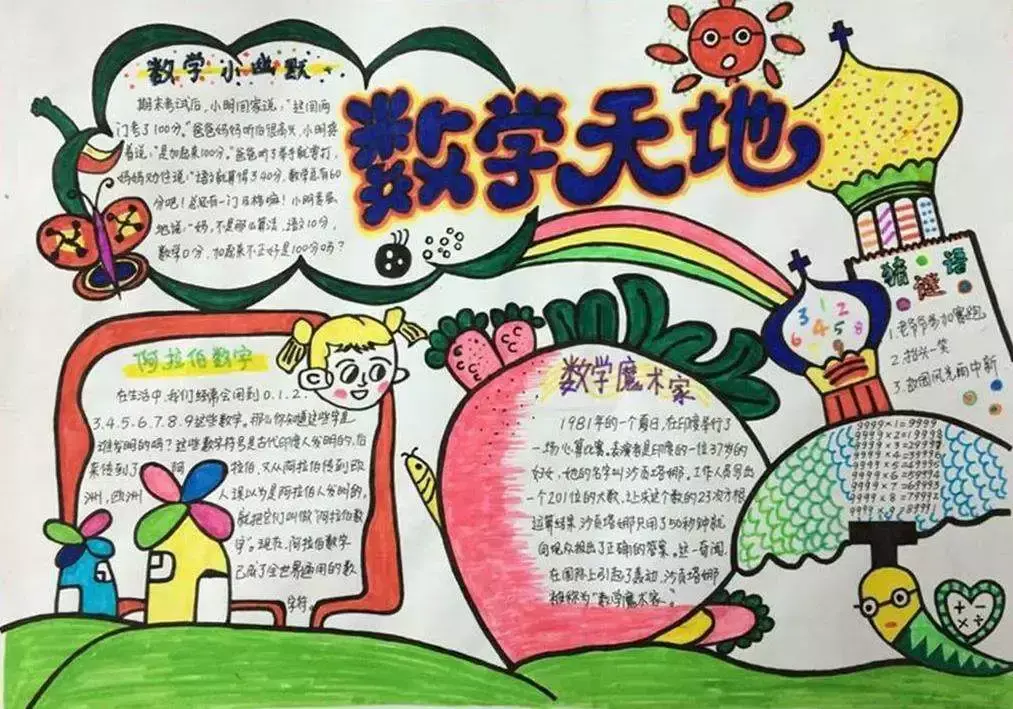 数学天地
数学小幽默
期末考试后，小明回家说：“这回两
门考了100分。”爸爸妈妈听后很高兴，小明接
着说：“是加起来100分。”爸爸听了举手就要打，
妈妈劝住说：“语文就算得了40分，数学总有60
分吧！总还有一门及格嘛！小明委屈
地说：“妈，不是那么算法，语文10分，
数学0分，加起来不正好是100分吗？
阿拉伯数字
在生活中，我们经常会用到0.1.2.
3.4.5.6.7.8.9这些数字。那么你知道这些字是
谁发明的吗？这些数字符号是古代印度人发明的，后
来传到了阿拉伯，又从阿拉伯传到欧
洲，欧洲人误以为是阿拉伯人发明的，
就把它们叫做“阿拉伯数
字”。现在，阿拉伯数字
已成了全世界通用的数
字符。
数学魔术家
1981年的一个夏日，在印度举行了
一场心算比赛。表演者是印度的一位37岁的
妇女，她的名字叫沙贡塔娜。工作人员写出
一个201位的大数，让求这个数的23次方根
运算结果，沙贡塔娜只用了50秒钟就
向观众报出了正确的答案。这一奇闻
在国际上引起了轰动，沙贡塔娜
被称为“数学魔术家”。
猜谜语
1.老爷爷参加赛跑
2.抬头一笑
3.故国风光雨中新
1 2
3 8
6 4 5
9999×1=9999
+ -
× ÷